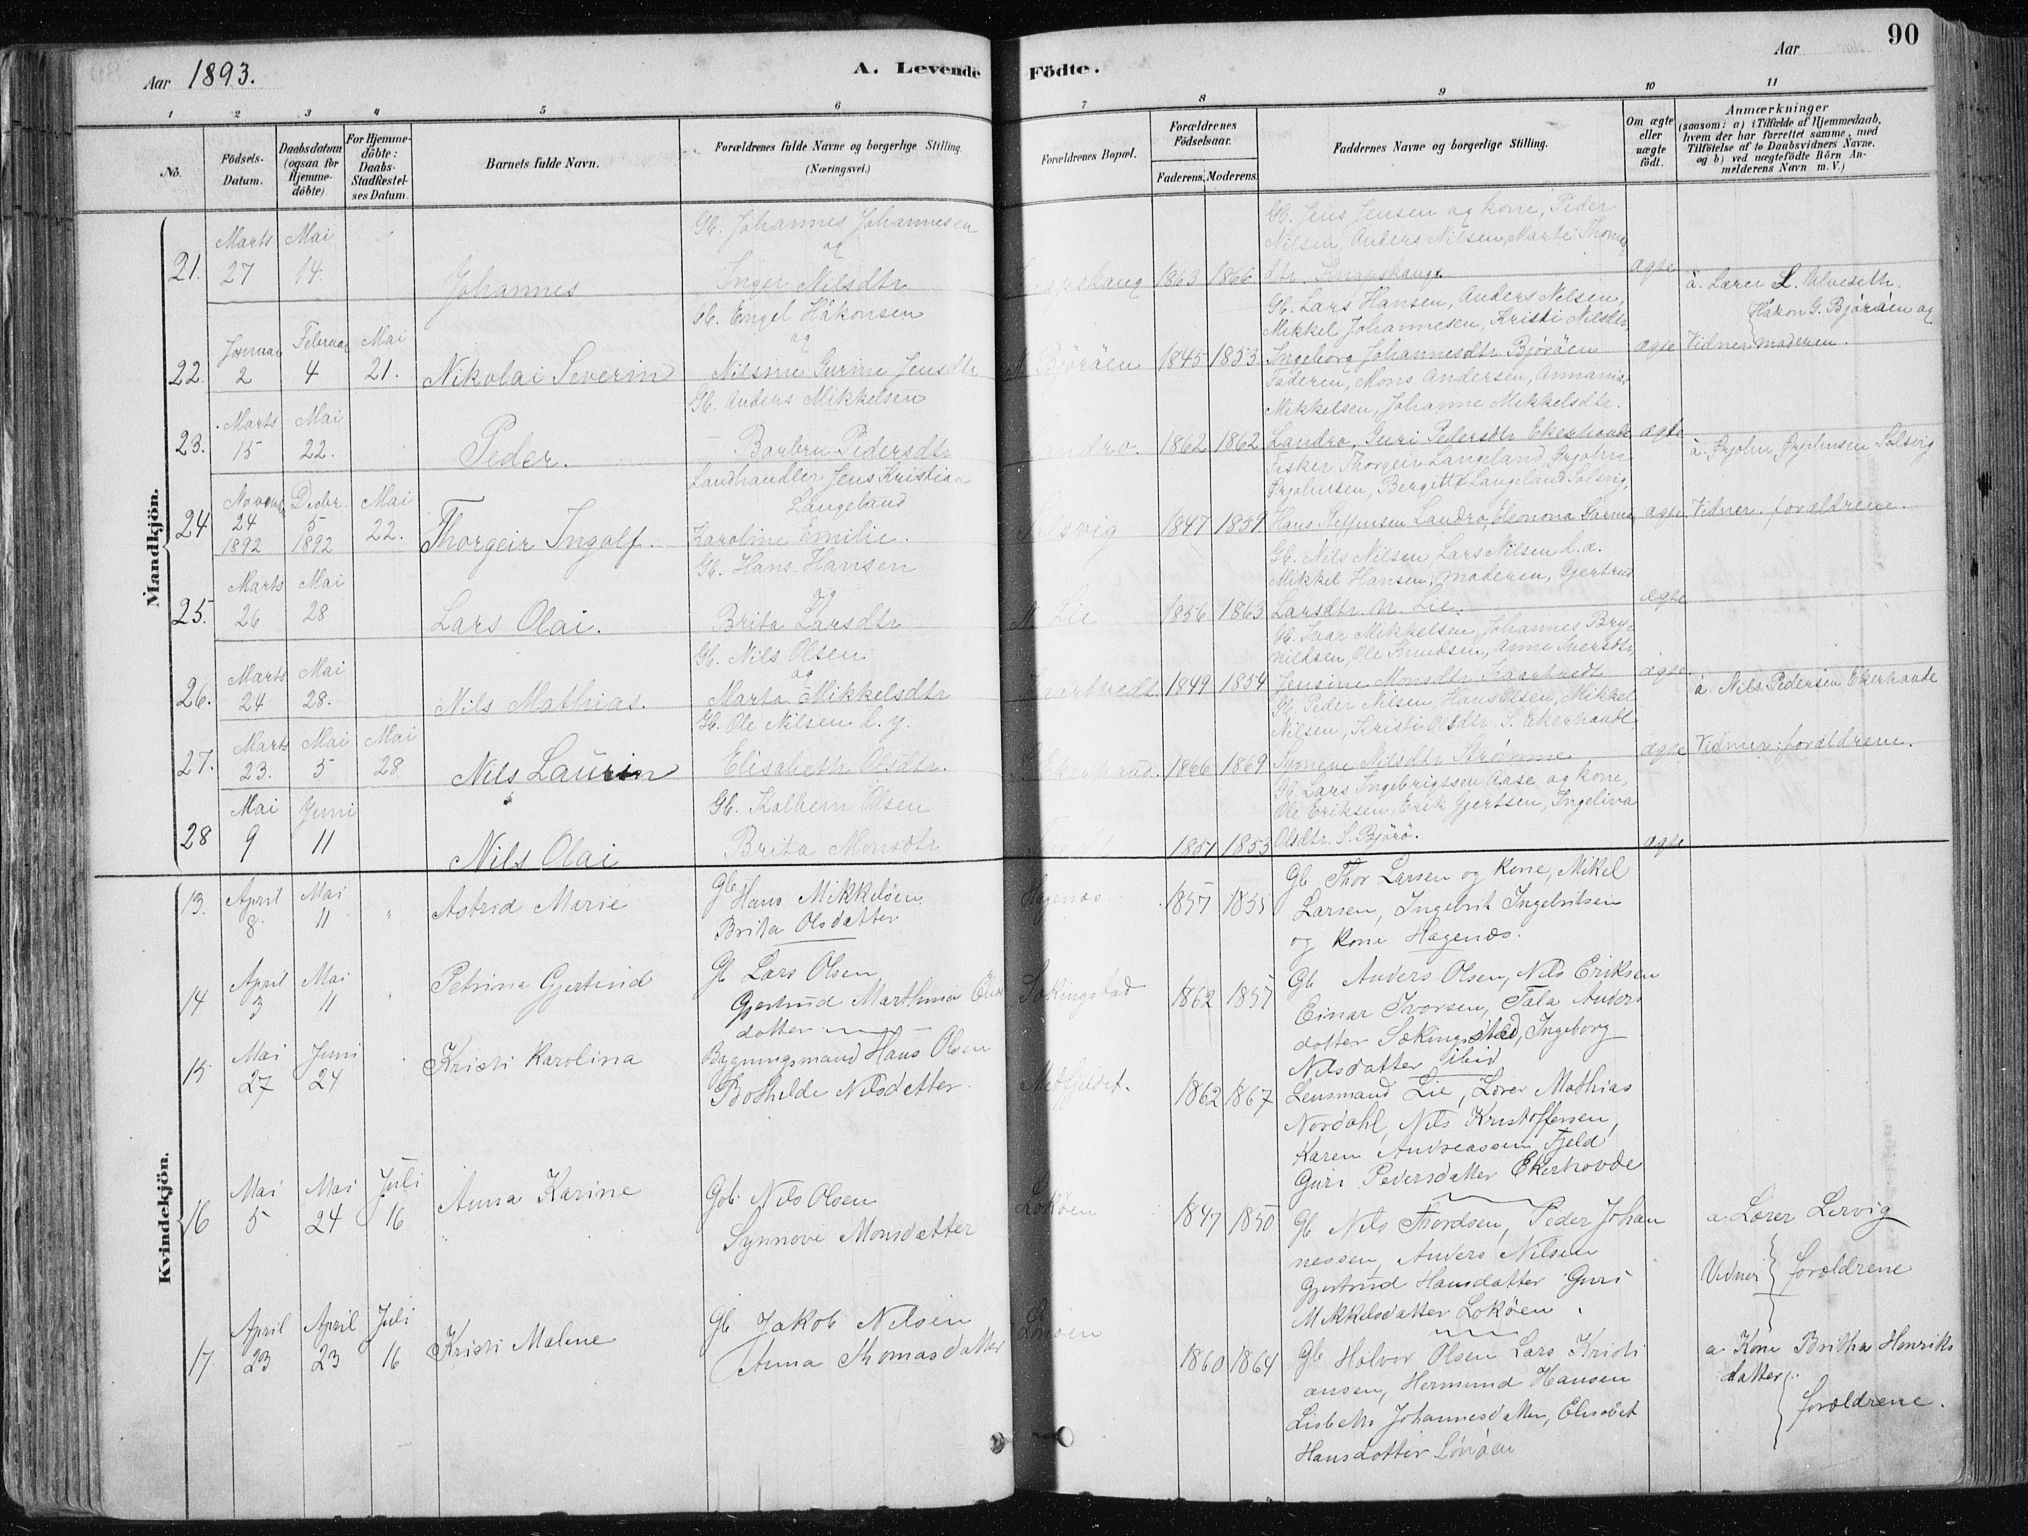 Aar 1893.
A. Levende Födte.
Aar
90
1 2 3 4 5 6 7 8 9 10 11
No.
Födsels-
Datum.
Daabsdatum
(ogsaa for
Hjemme-
döbte)
For Hjemme-
döbte:
Daabs-
Stadfæstel-
ses Datum
Barnets fulde Navn.
Forældrenes fulde Navne og borgerlige Stilling.
(Næringsvei.)
Forældrenes Bopæl.
Forældrenes
Födselsaar.
Faderens. Moderens.
Faddernes Navne og borgerlige Stilling.
Om ægte
eller
uægte
födt.
Anmærkninger
(saasom: a) i Tilfælde af Hjemmedaab,
hvem der har forrettet samme, med
Tilföielse af to Daabsvidners Navne,
og b) ved uægtefödte Börn An-
melderens Navn m. V.)
Mandkjön.
21. Marts 27 Mai 14.
Johannes
Gb. Johannes Johannesen
og
Inger Nilsdtr
1863 1866
Gb. Jens Jensen og kone, Peder
Nilsen, Anders Nilsen, Marta Thomas
dtr.
ægte
22. Januar 2 Februar 4 Mai 21.
Nikolai Severin
Gb. Engel Håkonsen
og
Nilsine Gurine Jensdtr
Björöen
1845 1853
Gb. Lars Hansen, Anders Nilsen,
Mikkel Johannesen, Kristi Nilsdtr,
Ingeborg Johannesdtr Björöen
ægte
a. Lærer L. Alvseth.
Håkon G. Björöen og
Vidner moderen.
23. Marts 15 Mai 22.
Peder.
Gb. Anders Mikkelsen
Barbru Pedersdtr
Landro.
1862 1862
Faderen, Mons Andersen, Annanias
Mikkelsen, Johanne Mikkelsdtr.
Landro, Guri Pedersdtr Ekerhovde
ægte
24 Novemb 24 1892 Decbr. 5 1892 Mai 22.
Thorgeir Ingolf.
Landhandler Jens Kristian
Langeland
Karoline Emilie.
Solsvig
1847 1859
Fisker Thorgeir Langeland, Ørjohn
Ørjohnsen, Bergitte Langeland Solsvig,
Hans Steffensen Landro,
ægte
a. Ørjohn Ørjohnsen Solsvig
Vidner: forældrene.
25. Marts 26 Mai 28
Lars Olai.
Gb. Hans Hansen
og
Brita Larsdtr
N. Lie
1856 1863
Gb. Nils Nilsen, Lars Nilsen d.æ.
Mikkel Hansen, moderen, Gjertrud
Larsdtr. N. Lie.
ægte
26. Marts 24 Mai 28.
Nils Mathias.
Gb. Nils Olsen
og
Marta Mikkelsdtr
Kaartvedt.
1849 1854
Gb. Ivar Mikkelsen, Johannes Bry-
nildsen, Ole Knudsen, Anna Iversdtr,
Jensine Monsdtr Kaartvedt
ægte
27. Marts 23. Mai 5 Mai 28
Nils Laurin
Gb. Ole Nilsen d. y.
Elisabeth Olsdtr.
Ekerhovd.
1866 1869
Gb. Peder Nilsen, Hans Olsen, Mikkel
Nilsen, Kristi Olsdtr. S. Ekerhovde
Synneve Nilsdtr Strømme
ægte
a. Nils Pedersen Ekerhovde
Vidner: forældrene.
28 Mai 9 Juni 11
Nils Olai
Gb. Kolbein Olsen
Brita Monsdtr
1851 1853
Gb. Lars Ingebrigtsen Aase og kone,
Ole Eriksen, Erik Gjertsen, Ingeliva
Olsdtr. S. Bjørø.
ægte
Kvindekjön.
13. April 8. Mai 11 "
Astrid Marie
Gb Hans Mikkelsen
Brita Olsdatter
Hagenæs
1857 1855
Gb Thor Larsen og kone, Mikel
Larsen, Ingebrit Ingebritsen
og kone Hagenæs.
14 April 3 Mai 11 "
Petrina Gjertrud
Gb Lars Olsen
Gjertrud Marthina
datter
Sækingstad
1862 1857
Gb Anders Olsen, Nils Eriksen
Einar Ivorsen, Tala Anders
datter Sækingstad, Ingeborg
Nilsdatter ibid
15 Mai 27 Juni 24
Kristi Karolina
Bygningsmand Hans Olsen
Bothilde Nilsdatter.
1862 1867
Lensmand Lie, Lærer Mathias
Nordahl, Nils Kristoffersen,
Karen Andreassen Fjeld
Guri Pedersdatter Ekerhovde
16 Mai 5 Mai 24 Juli 16
Anna Karine
Gb. Nils Olsen
Synnove Monsdatter
Lokøen
1847 1850
Gb Nils Thordsen, Peder Johan
nessen, Anders Nilsen
Gjertrud Hansdatter Guri
Mikkelsdatter Lokøen.
a Lærer Lervig
Vidner forældrene
17 April 23 April 23 Juli 16
Kristi Malene
Gb Jakob Nilsen
Anna Thomasdatter
1860 1864
Gb Halvor Olsen Lars Kristi
ansen, Hermund Hansen
Lisbeth Johannesdatter, Elisabet
Hansdatter
a Kone Britha Henriks
datter
forældrene.